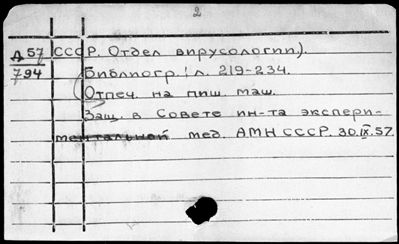 2
Д 57 СССР. Отдел вирусологии).
794 Библиогр.: л. 219-234.
Отпеч. на пиш. маш.
Защ. в Совете ин-та экспери-
ментальной мед. АМН СССР. 30.IX.57.